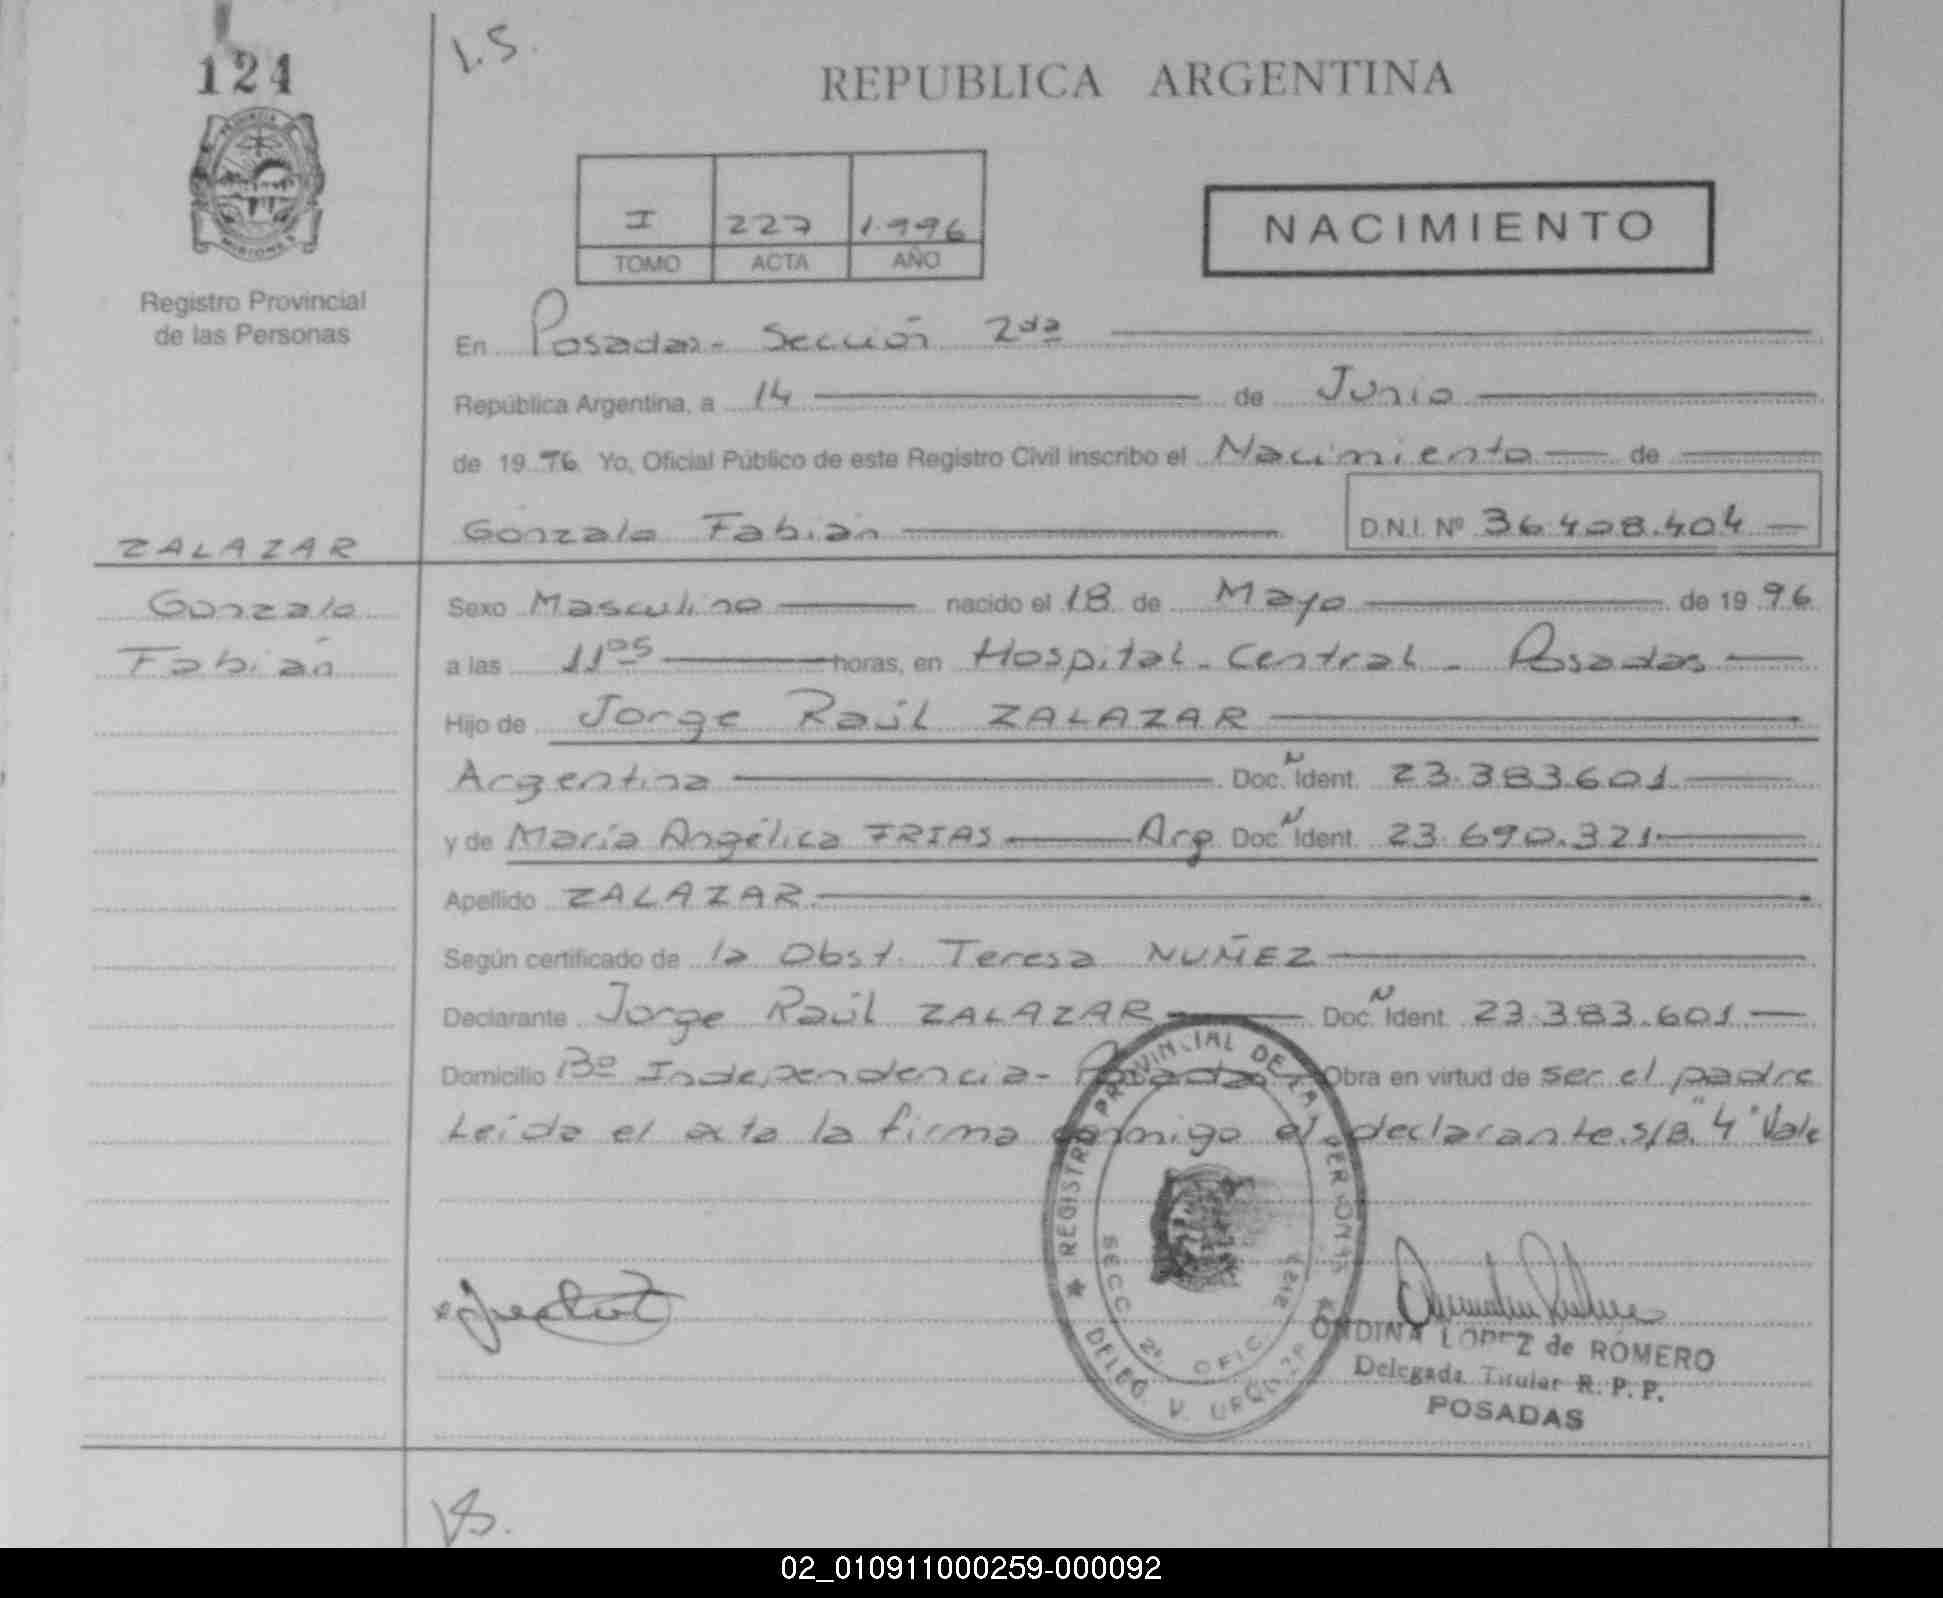 124
I.S.
REPUBLICA ARGENTINA
PROVINCIA
MISIONES
I 227 1.996
TOMO ACTA AÑO
NACIMIENTO
Registro Provincial
de las Personas
En Posadas- Sección 2da
República Argentina, a 14 de Junio
de 1996 Yo, Oficial Público de este Registro Civil inscribo el Nacimiento de
Gonzalo Fabián D.N.I. Nº 36.408.404
ZALAZAR
Gonzalo
Fabián
Sexo Masculino nacido el 18 de Mayo de 1996
a las 11 05 horas, en Hospital- Central- Posadas
Hijo de Jorge Raúl ZALAZAR
Argentina Doc. Ident. 23.383.601
y de María Angélica FRIAS Arg. Doc. Ident. 23.690.321
Apellido ZALAZAR
Según certificado de la Obst. Teresa NUÑEZ
Declarante Jorge Raúl ZALAZAR Doc. Ident. 23.383.601
Domicilio Bº Independencia- Posadas Obra en virtud de ser el padre
Leída el acta la firma conmigo el declarante. S/B. "4" Vale
REGISTRO PROVINCIAL DE LAS PERSONAS
SECC. 2ª OFIC.
DELEG. V. URQUIZA
ONDINA LOPEZ de ROMERO
Delegada Titular R. P. P.
POSADAS
02_010911000259-000092